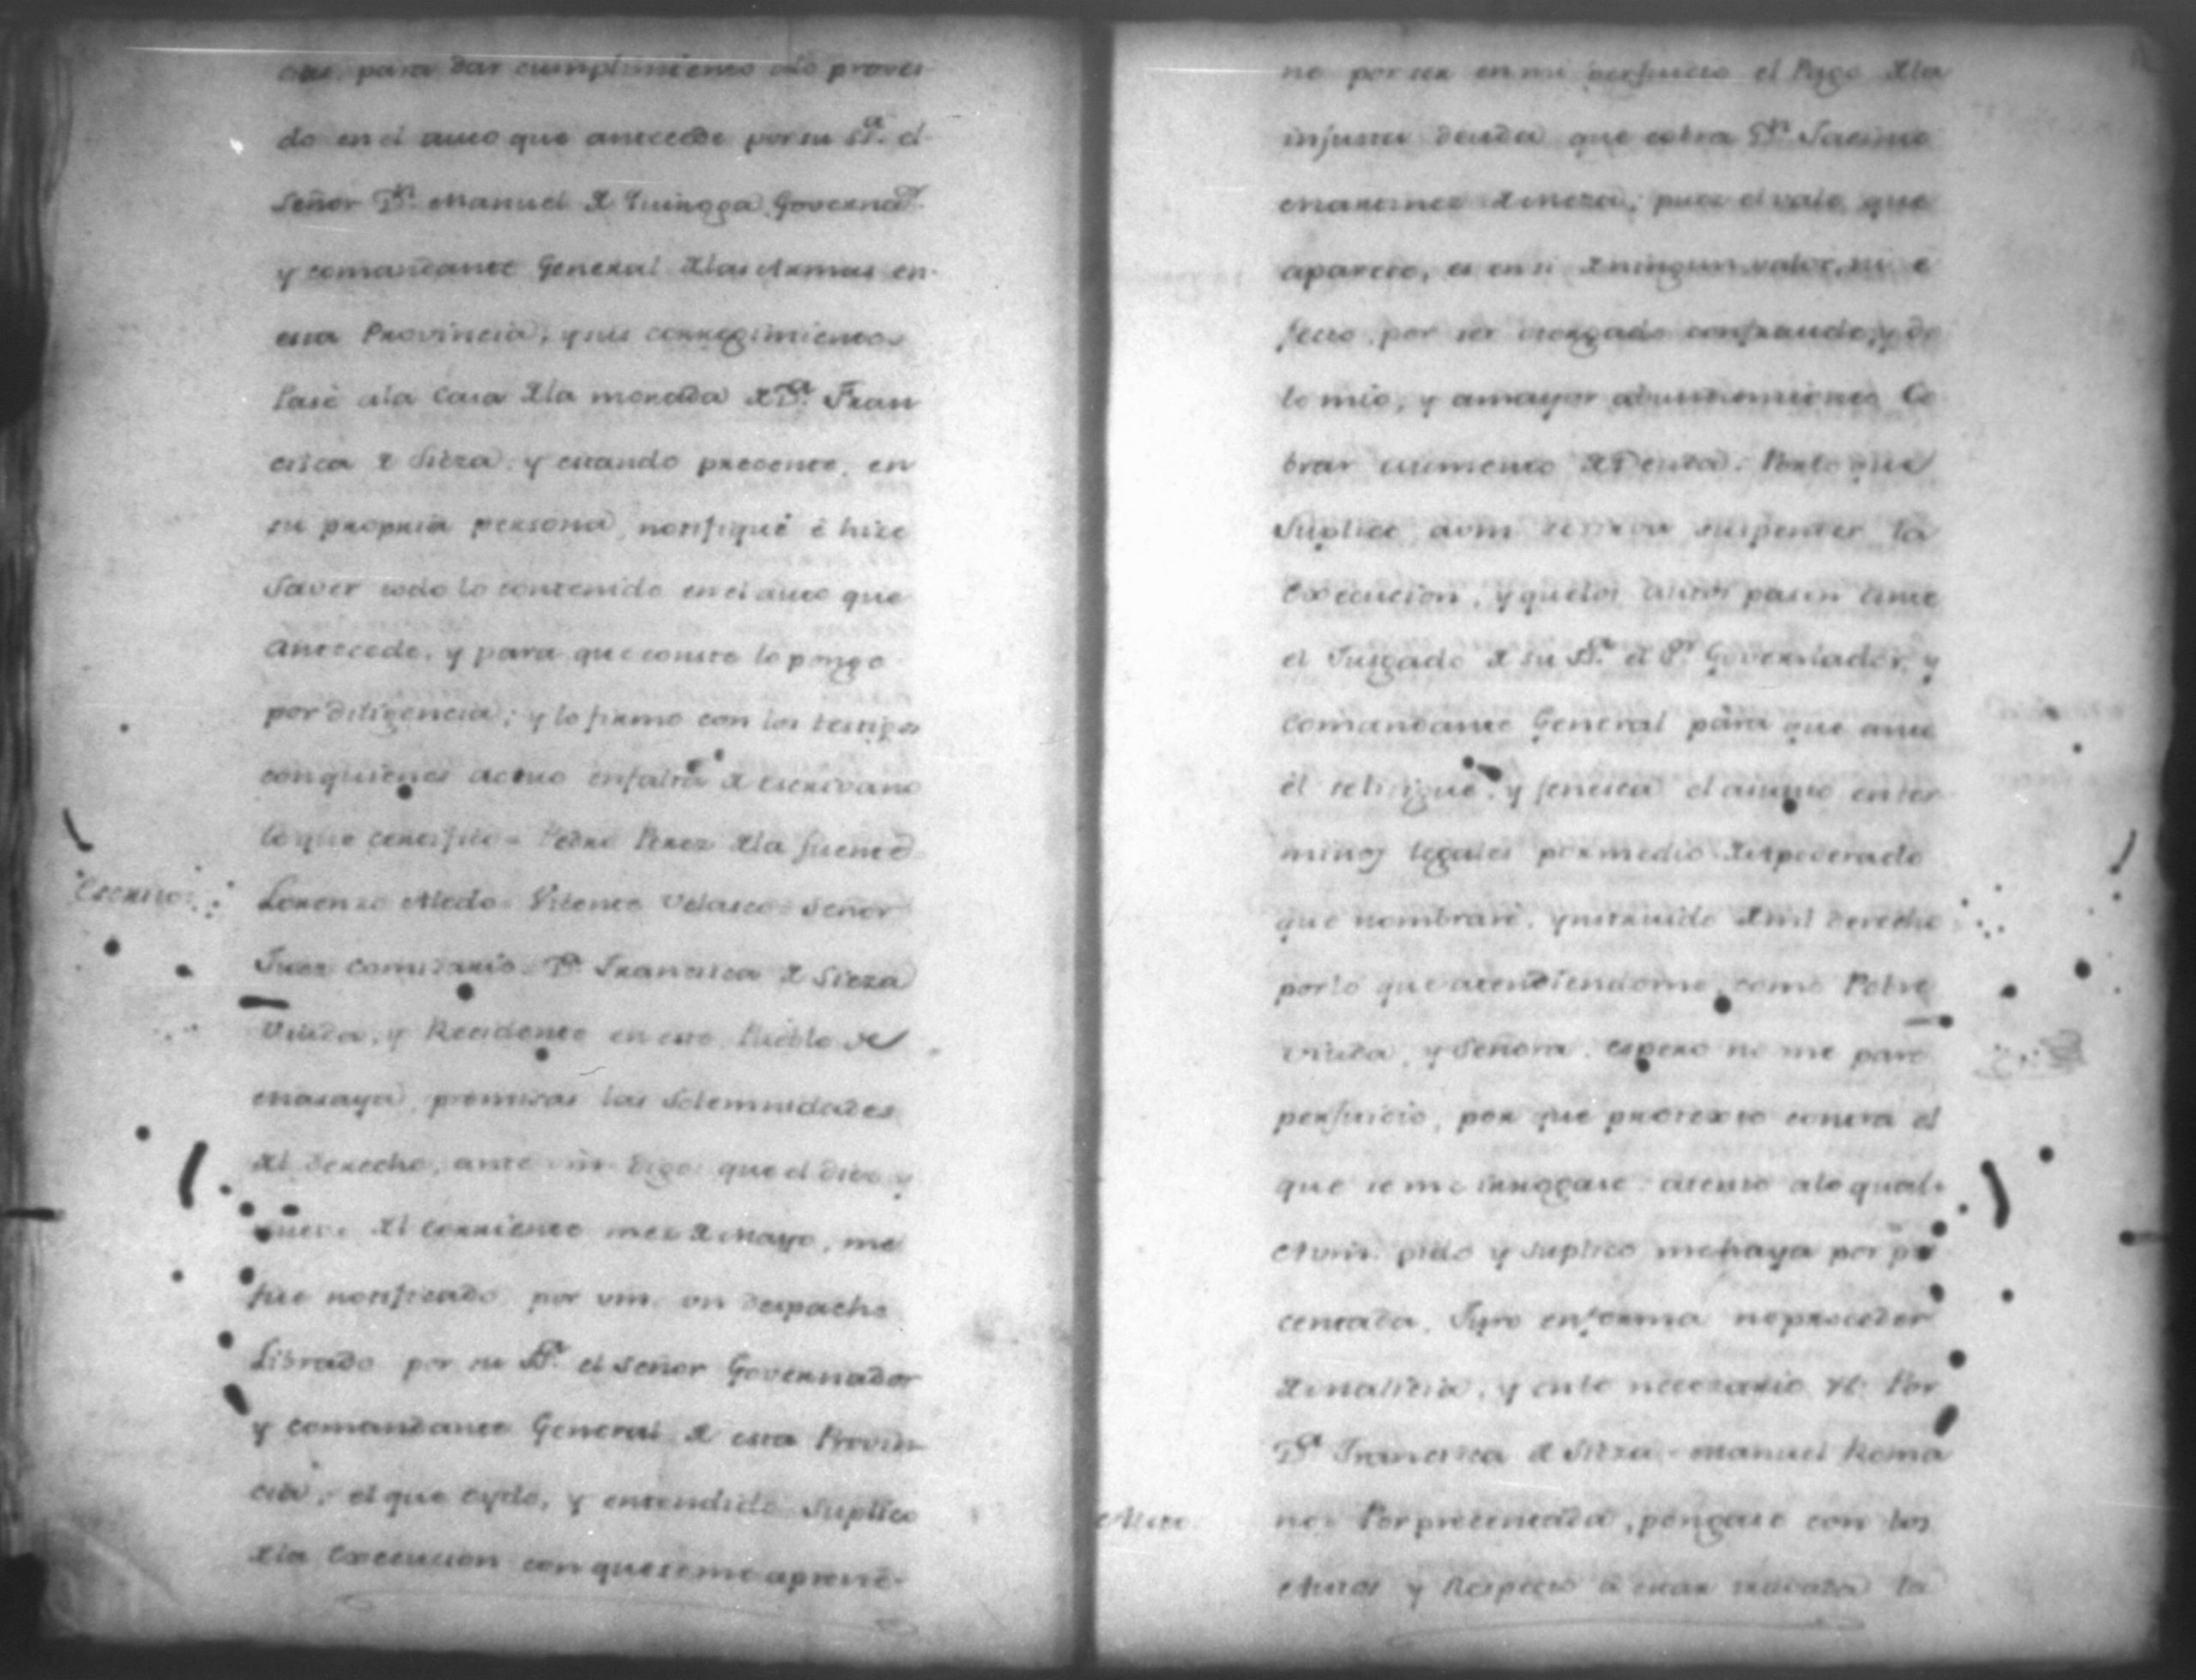 para dar cumplimiento alo provei
do en el auto que antecede por su Sª. el
Señor Dn. Manuel de Quiroga Governador
y comandante General delas Armas en
esta Provincia, y sus corregimientos
Pasé ala Casa dela morada de Dª. Fran
cisca de Sieza y estando precente, en
su propria persona, notifiqué é hize
Saver todo lo contenido en el auto que
Antecede, y para que conste lo pongo
por diligencia; y lo firmo con los testigos
con quienes actuo en falta de escrivano
lo que certifico = Pedro Perez dela fuente =
Escrito. Lorenzo Aledo = Vicente Velasco = Señor
Juez Comisario = Dª. Francisca de Sieza
Viuda, y Recidente en este Pueblo de
Masaya, premisas las Solemnidades
del derecho, ante vm. digo: que el diez y
nueve del corriente mes de Mayo, me
fue notificado por vm. un despacho
Librado por su Sª. el Señor Governador
y comandante General de esta Provin
cia, el que oydo, y entendido Suplico
dela Execucion con que se me apremi-
no por ser en mi perjuicio el Pago dela
injusta deuda que cobra Dn. Jacinto
Martinez de Meza; pues el vale que
aparece, es en si de ningun valor, ni e
fecto, por ser otorgado con fraude, y do
lo mio, y a mayor abundamiento Co
brar aumento de Deuda. Porlo que
Suplico avm se sirva suspender la
Execucion, y quelos autos pasen ante
el Jusgado de su Sª. el Sr. Governador, y
Comandante General para que ante
él se litigue, y fenesca el asunto en ter
minos legales por medio de Apoderado
que nombraré, ynstruido de mi derecho
porlo que atendiendome, como Pobre
viuda, y Señora, espero no me pare
perjuicio, por que protexto contra el
que se me irrogare: atento alo qual.
Avm. pido y Suplico me haya por pre
centada, Juro en forma no proceder
de malicia, y en lo necezario &ª. Por
Dª. Francisca de Sieza = Manuel Roma
Auto. no = Por precentada, pongase con los
Autos y Respecto á estar travada la